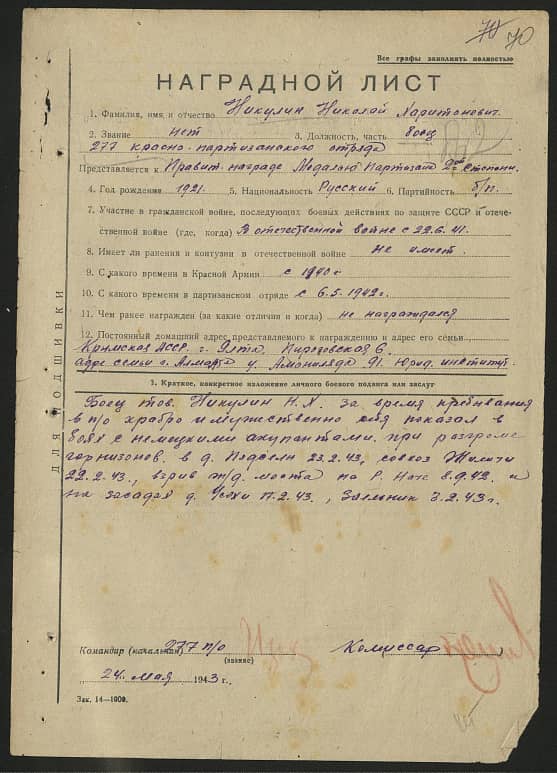 70 70
Все графы заполнять полностью
НАГРАДНОЙ ЛИСТ
1. Фамилия, имя и отчество Никулин Николай Харитонович.
2. Звание нет 3. Должность, часть боец
277 красно-партизанского отряда
Представляется к Правит. награде Медалью Партизан 2ой Степени.
4. Год рождения 1921. 5. Национальность Русский 6. Партийность б/п.
7. Участие в гражданской войне, последующих боевых действиях по защите СССР и отече-
ственной войне (где, когда) В отечественной войне с 22.6.41.
8. Имеет ли ранения и контузии в отечественной войне Не имеет.
9. С какого времени в Красной Армии с 1940г
10. С какого времени в партизанском отряде с 6.5.1942г.
11. Чем ранее награжден (за какие отличия и когда) не награждался
12. Постоянный домашний адрес представляемого к награждению и адрес его семьи
Крымская АССР. г. Ялта, 6.
адрес семьи г. у. 91. Юрид. институт.
1. Краткое, конкретное изложение личного боевого подвига или заслуг
Боец тов. Никулин Н.Х. за время пребывания
в п/о храбро и мужественно себя показал в
боях с немецкими окупантами. при разгроме
горнизонов. в д. 23.2.43, совхоз Жиличи
22.2.43., взрыв ж/д. моста на Р. 8.9.42. и
на засадах д. Усохи 2.43., 2.43г.
ДЛЯ ПОДШИВКИ
Командир (начальник) 277 п/о Комиссар
(звание)
„24" мая 1943 г.,
Зак. 14—1000.